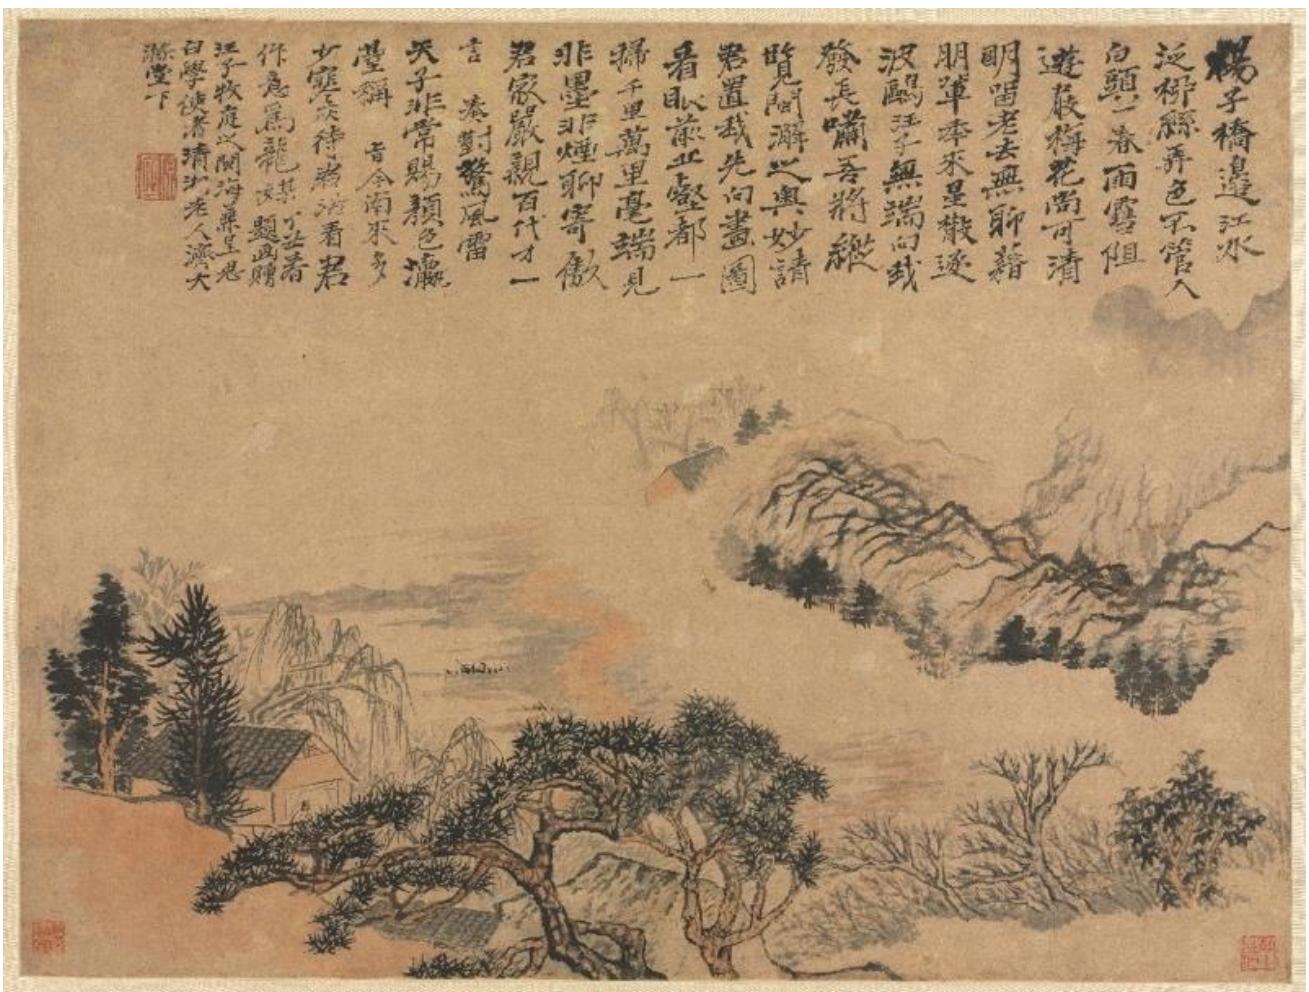 楊子橋邊江水
泛柳絲弄色不管人
白頭二春雨雪阻
遊屐梅花尚可清
明留老去無聊藉
朋輩本來星散逐
波鷗江子無端向我
發長嘯吾將縱
覽閩澥之奧妙請
君置我先向畫圖
看眼前丘壑都一
掃千里萬里毫端見
非墨非煙聊寄傲
君家嚴親百代才一
言 奏對驚風雷
天子非常賜顏色瀛
臺稱 旨今南來多
少寒 待君 看君
作急為龍 題畫贈
江子牧庭之閩海兼呈
白學使者清湘老人濟大
滌堂下